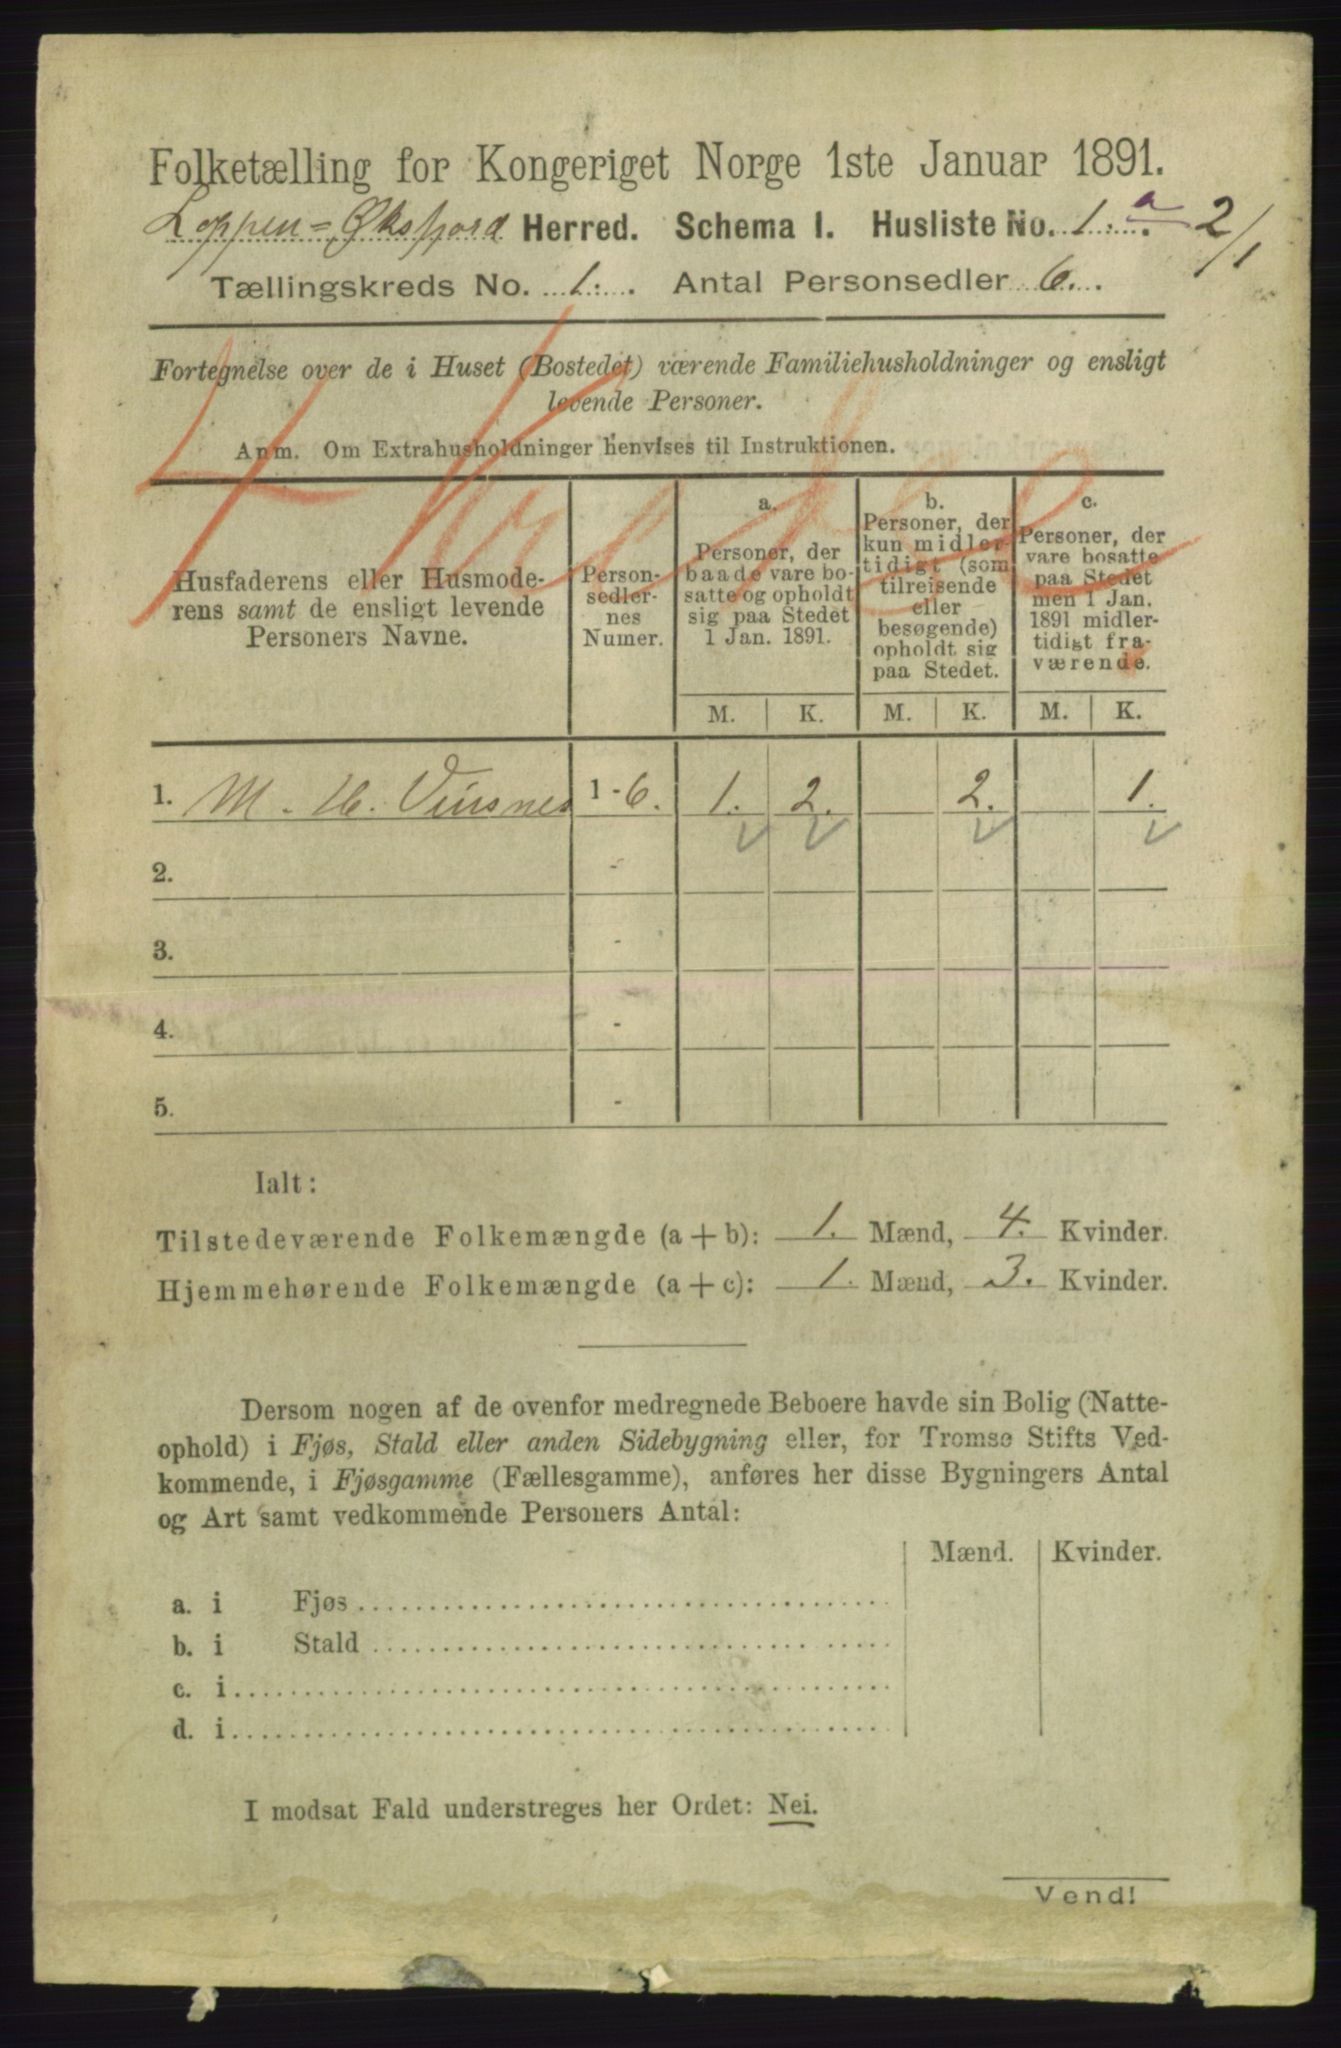 Folketælling for Kongeriget Norge 1ste Januar 1891.
Loppen=Øksfjord Herred. Schema I. Husliste No. 1. a 2/1
Tællingskreds No. 1. Antal Personsedler 6.
Fortegnelse over de i Huset (Bostedet) værende Familiehusholdninger og ensligt
levende Personer.
Anm. Om Extrahusholdninger henvises til Instruktionen.
Husfaderens eller Husmode-
rens samt de ensligt levende
Personers Navne.
Person-
sedler-
nes
Numer.
a.
Personer, der
baade vare bo-
satte og opholdt
sig paa Stedet
1 Jan. 1891.
b.
Personer, der
kun midler-
tidigt (som
tilreisende
eller
besøgende)
opholdt sig
paa Stedet.
c.
Personer, der
vare bosatte
paa Stedet
men 1 Jan.
1891 midler-
tidigt fra-
værende.
M. K. M. K. M. K.
1. M. H. 1-6. 1. 2. 2. 1.
2. -
3. -
4. -
5. -
Ialt:
Tilstedeværende Folkemængde (a+b): 1. Mænd, 4. Kvinder.
Hjemmehørende Folkemængde (a+c): 1. Mænd, 3. Kvinder.
Dersom nogen af de ovenfor medregnede Beboere havde sin Bolig (Natte-
ophold) i Fjøs, Stald eller anden Sidebygning eller, for Tromsø Stifts Ved-
kommende, i Fjøsgamme (Fællesgamme), anføres her disse Bygningers Antal
og Art samt vedkommende Personers Antal:
Mænd. Kvinder.
a. i Fjøs
b. i Stald
c. i
d. i
I modsat Fald understreges her Ordet: Nei.
Vend!